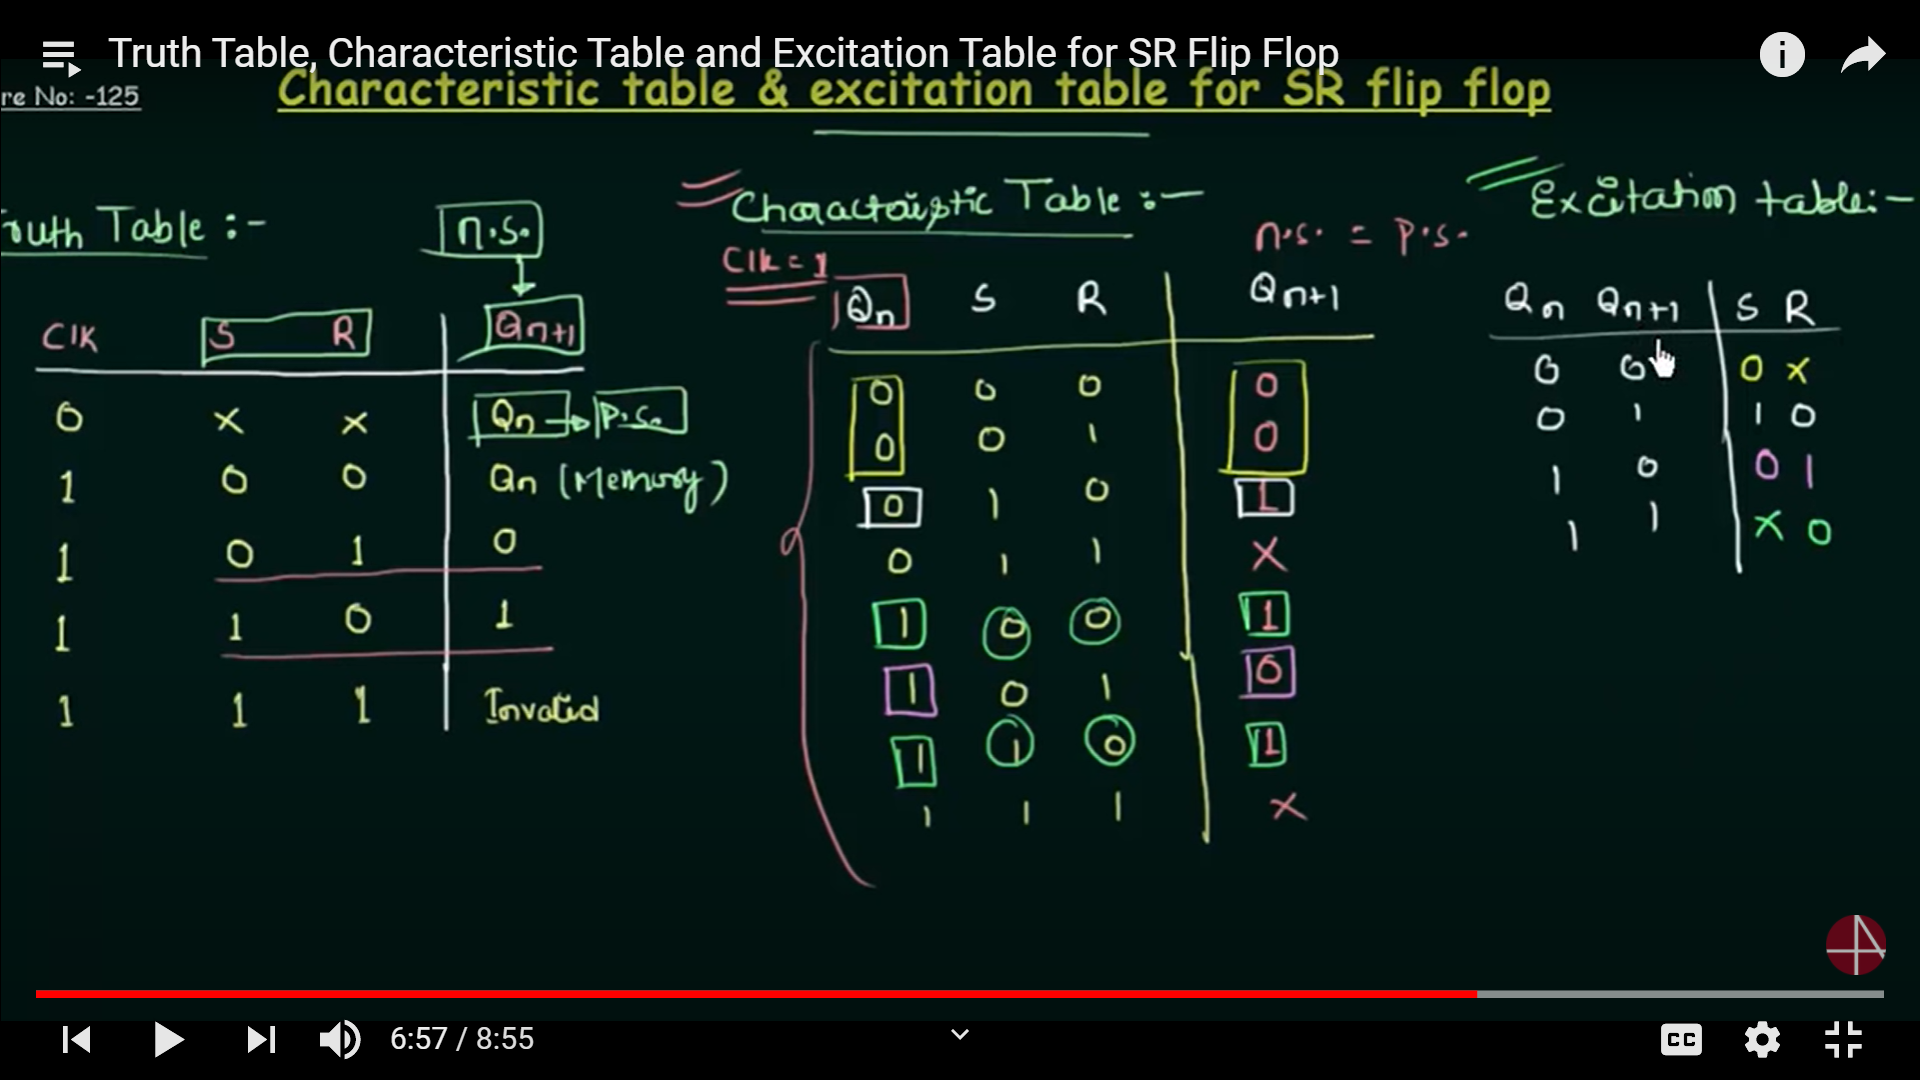 Truth Table, Characteristic Table and Excitation Table for SR Flip Flop
re No: -125
Characteristic table & excitation table for SR flip flop
Truth Table :-
n.s.
Clk S R Qn+1
0 x x Qn → P.S.
1 0 0 Qn (Memory)
1 0 1 0
1 1 0 1
1 1 1 Invalid
Characteristic Table :-
Clk = 1
n.s. = p.s.
Qn S R Qn+1
0 0 0 0
0 0 1 0
0 1 0 1
0 1 1 X
1 0 0 1
1 0 1 0
1 1 0 1
1 1 1 X
Excitation table:-
Qn Qn+1 S R
0 0 0 x
0 1 1 0
1 0 0 1
1 1 x 0
6:57 / 8:55
CC